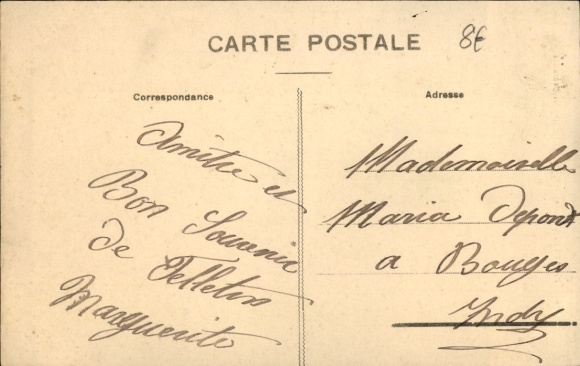 CARTE POSTALE
8€
Correspondance
Adresse
Amitié et
Bon Souvenir
de Felletin
Marguerite
Mademoiselle
Maria Depont
a Bouges
Indre